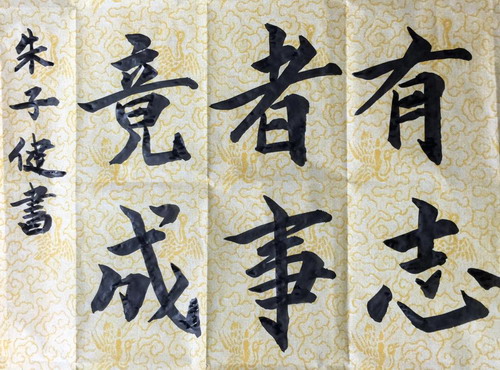 有志
者事
竟成
朱子健書